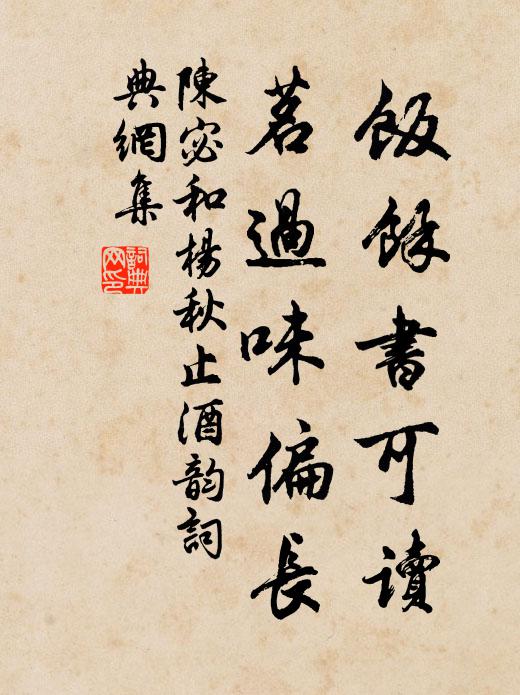 飯餘書可讀
茗過味偏長
陳宓和楊秋止酒韵詞
典網集
詞典
网印